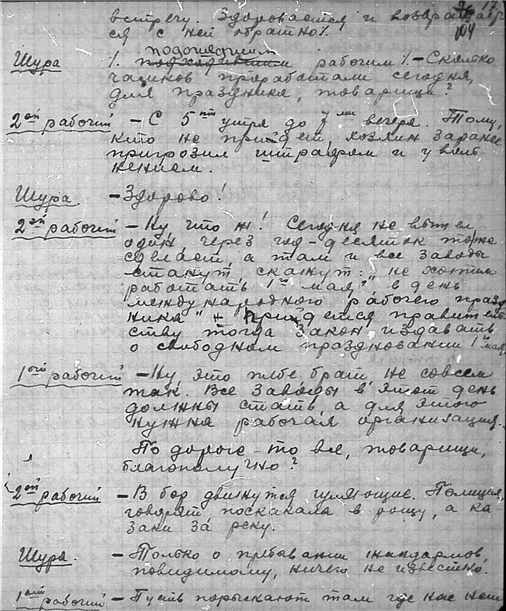 встречу. Здоровается и возвращает
ся с ней обратно/.
Шура /. подошедшим рабочим/. – Сколько
часиков проработали сегодня,
для праздника, товарищи?
2ой рабочий – С 5ти утра до 7ми вечера. Тому,
кто не придет, хозяин заранее
пригрозил штрафом и уволь
нением.
Шура. – Здорово!
2ой рабочий – Ну что ж! Сегодня не вышел
один, через год – десяток тоже
сделает, а там и все заводы
станут, скажут: „не хотим
работать 1го мая", в день
международного рабочего празд
ника" + придется правитель
ству тогда закон издавать
о свободном праздновании 1 мая.
1ый рабочий – Ну, это тебе брат, не совсем
так. Все заводы в этот день
должны стать, а для этого
нужна рабочая организация.
По дороге-то все, товарищи,
благополучно?
2ой рабочий – В бор движутся гуляющие. Полиция,
говорят поскакала в рощу, а ка-
заки за реку.
Шура. – Только о пребывании жандармов,
повидимому, ничего не известно.
1ый рабочий – Пусть порыскают там где нас нет